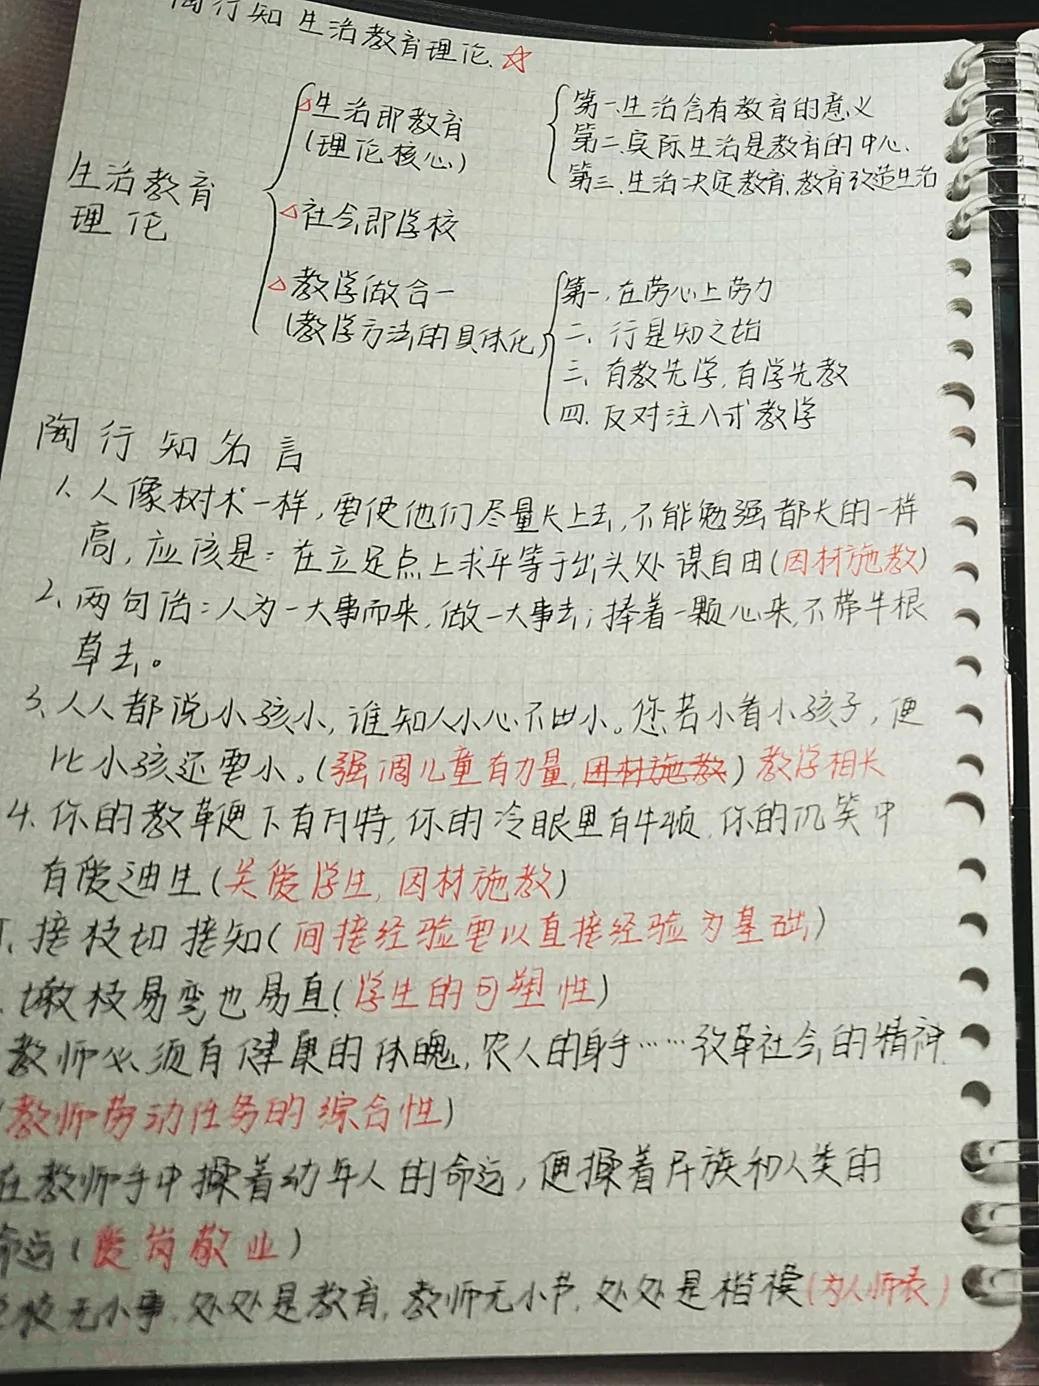 陶行知生活教育理论
生活教育
理论
生活即教育
(理论核心)
第一.生活含有教育的意义
第二.实际生活是教育的中心.
第三.生活决定教育,教育改造生活
社会即学校
教学做合一
(教学方法的具体化)
第一,在劳心上劳力
二、行是知之始
三,有教先学,有学先教
四.反对注入式教学
陶行知名言
1、人像树木一样,要使他们尽量长上去,不能勉强都长的一样
高,应该是:在立足点上求平等于出头处谋自由(因材施教)
2、两句话:人为一大事而来,做一大事去;捧着一颗心来,不带半根
草去。
3、人人都说小孩小,谁知人小心不小。您若小看小孩子,便
比小孩还要小。(强调儿童有力量,因材施教)教学相长
4.你的教鞭下有瓦特,你的冷眼里有牛顿,你的讥笑中
有爱迪生(关爱学生,因材施教)
接枝如接知(间接经验要以直接经验为基础)
嫩枝易弯也易直(学生的可塑性)
教师必须有健康的体魄,农人的身手……改革社会的精神
(教师劳动任务的综合性)
在教师手中操着幼年人的命运,便操着民族和人类的
命运(爱岗敬业)
校无小事,处处是教育,教师无小节,处处是楷模(为人师表)